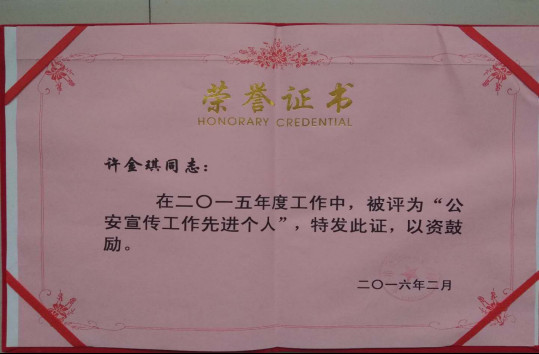 荣誉证书
HONORARY CREDENTIAL
许金琪同志：
在二〇一五年度工作中，被评为“公
安宣传工作先进个人”，特发此证，以资鼓
励。
二〇一六年二月